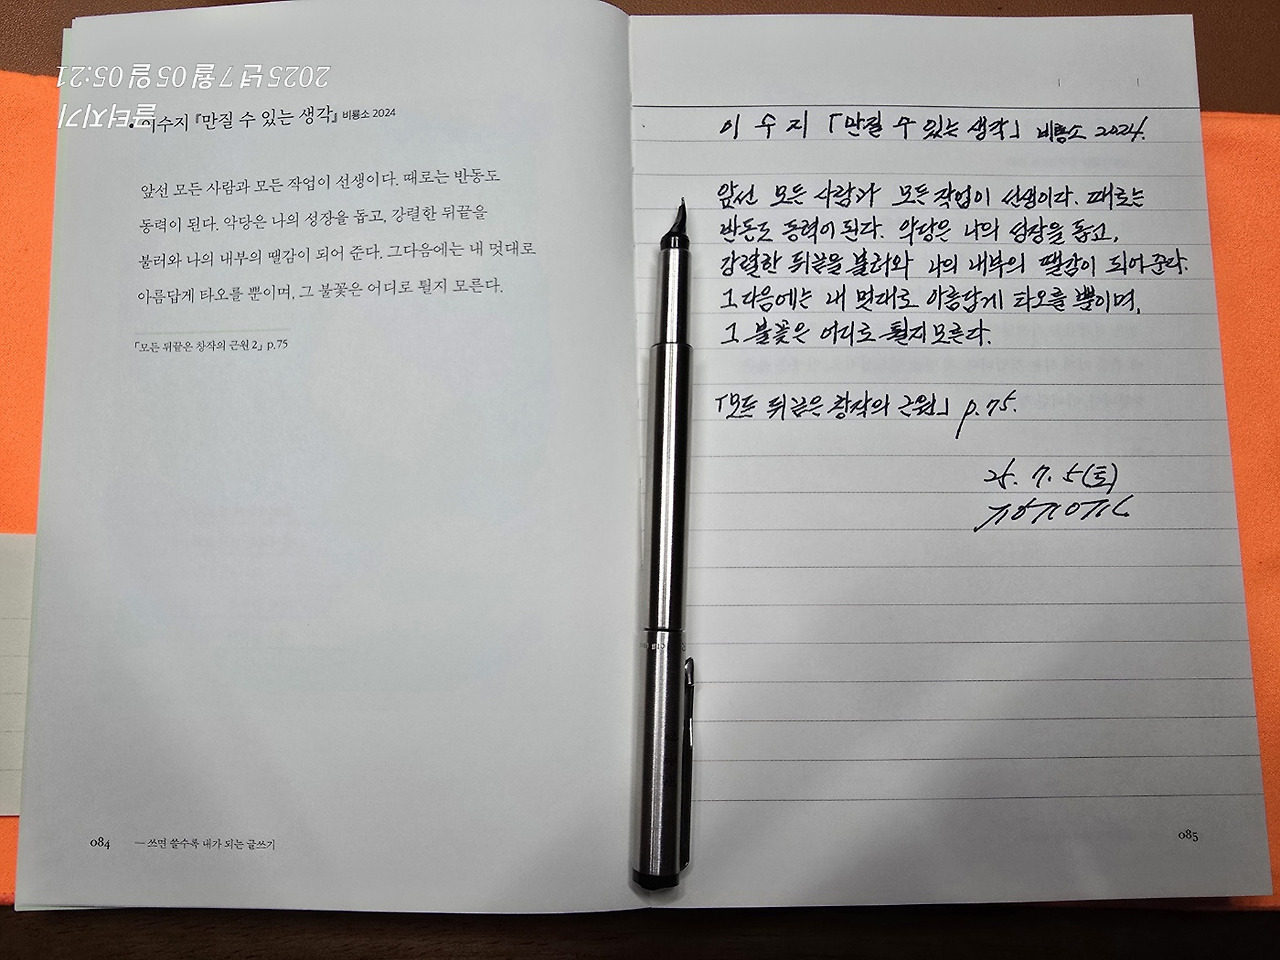 2025년 7월 05일 05:21
글터지기
• 이수지 『만질 수 있는 생각』 비룡소 2024
앞선 모든 사람과 모든 작업이 선생이다. 때로는 반동도
동력이 된다. 악당은 나의 성장을 돕고, 강렬한 뒤끝을
불러와 나의 내부의 땔감이 되어 준다. 그다음에는 내 멋대로
아름답게 타오를 뿐이며, 그 불꽃은 어디로 튈지 모른다.
「모든 뒤끝은 창작의 근원 2」 p.75
084 — 쓰면 쓸수록 내가 되는 글쓰기
이수지 「만질 수 있는 생각」 비룡소 2024.
앞선 모든 사람과 모든 작업이 선생이다. 때로는
반동도 동력이 된다. 악당은 나의 성장을 돕고,
강렬한 뒤끝을 불러와 나의 내부의 땔감이 되어 준다.
그다음에는 내 멋대로 아름답게 타오를 뿐이며,
그 불꽃은 어디로 튈지 모른다.
「모든 뒤끝은 창작의 근원」 p.75.
25. 7. 5(토)
085